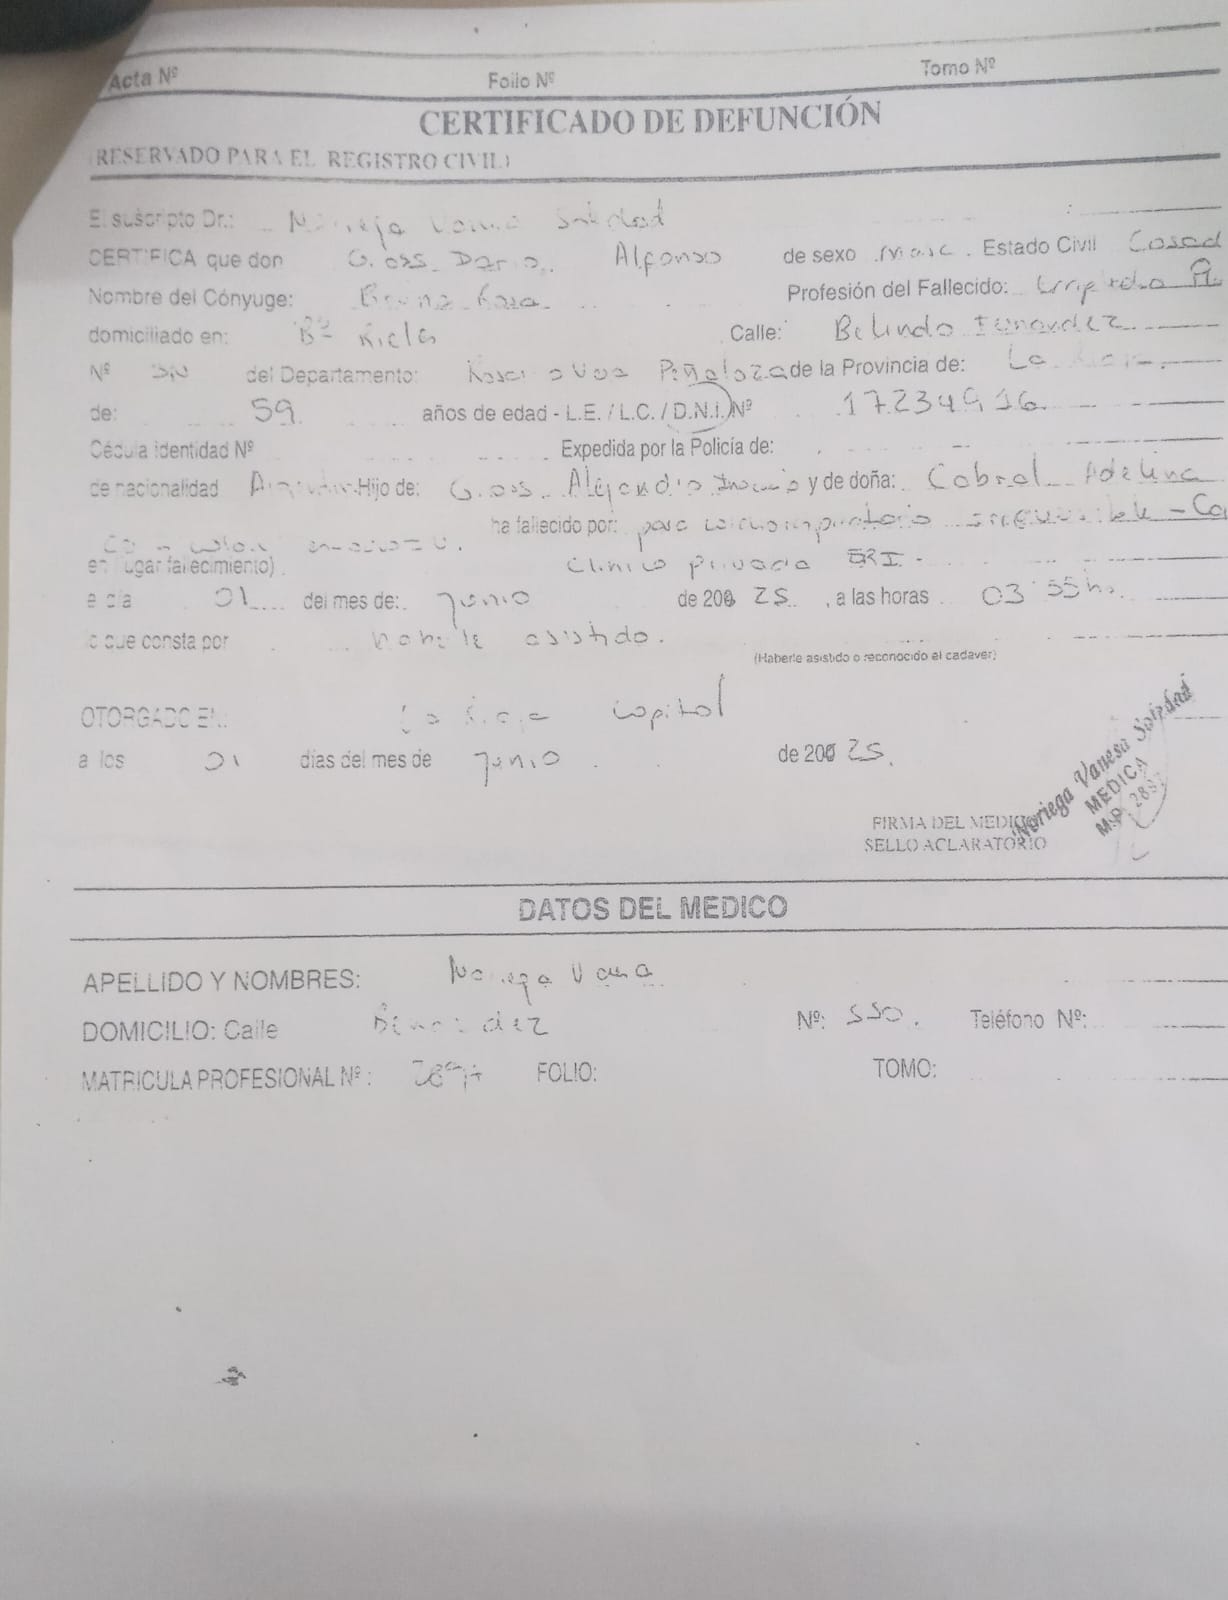 Acta Nº Folio Nº Tomo Nº
CERTIFICADO DE DEFUNCIÓN
(RESERVADO PARA EL REGISTRO CIVIL)
El suscripto Dr.: Noriega Soledad
CERTIFICA que don Goss Dario Alfonso de sexo masc. Estado Civil Casad
Nombre del Cónyuge: Rosa Profesión del Fallecido:
domiciliado en: Bº Calle:
Nº del Departamento: Peñaloza de la Provincia de: La Rioja
de: 59 años de edad - L.E. / L.C. / D.N.I. Nº 17.234.916
Cédula identidad Nº Expedida por la Policía de:
de nacionalidad Hijo de: Goss Alejandro y de doña: Cabral Adelina
ha fallecido por: paro
en (lugar fallecimiento) Clinica Privada
el día 01 del mes de: Junio de 200 25, a las horas 03:55 hs.
lo que consta por haberle asistido.
(Haberle asistido o reconocido al cadaver)
OTORGADO EN: La Rioja Capital
a los 01 días del mes de Junio de 200 25.
Noriega Vanesa Soledad
MEDICA
M.P.
FIRMA DEL MEDICO
SELLO ACLARATORIO
DATOS DEL MEDICO
APELLIDO Y NOMBRES: Noriega
DOMICILIO: Calle Nº: 550. Teléfono Nº:
MATRICULA PROFESIONAL Nº: FOLIO: TOMO: